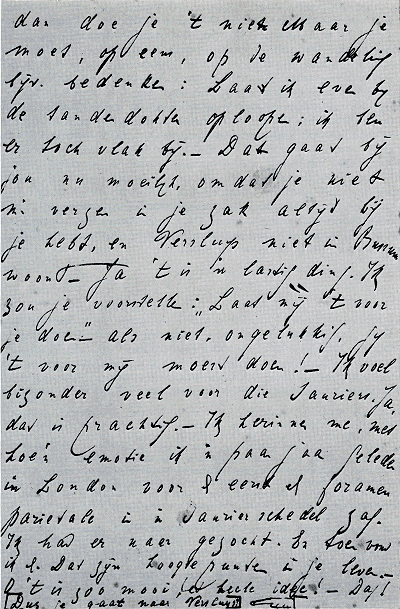 dan doe je 't niet. Maar je
moet, opeens, op de wandeling
bijv. bedenken: Laat ik even bij
de tandendokter oploopen; ik ben
er toch vlak bij. – Dat gaat bij
jou nu moeilijk, omdat je niet
m'n verzen in je zak altijd bij
je hebt, en Versluys niet in Bussum
woont – Ja 't is 'n lastig ding. Ik
zou je voorstellen: „Laat mij 't voor
je doen" als niet, ongelukkig, jij
't voor mij moest doen! – Ik voel
bizonder veel voor die Sauriërs. Ja,
dat is prachtig. – Ik herinner me, met
hoe'n emotie ik 'n paar jaar geleden
in London voor 't eerst 't foramen
parietale in 'n saurierschedel zag.
Ik had er naar gezocht. En toen vond
ik 't. Dat zijn hoogtepunten in je leven –
't is zoo mooi, 'n heele idee! – Dag!
Dus je gaat naar Versluys